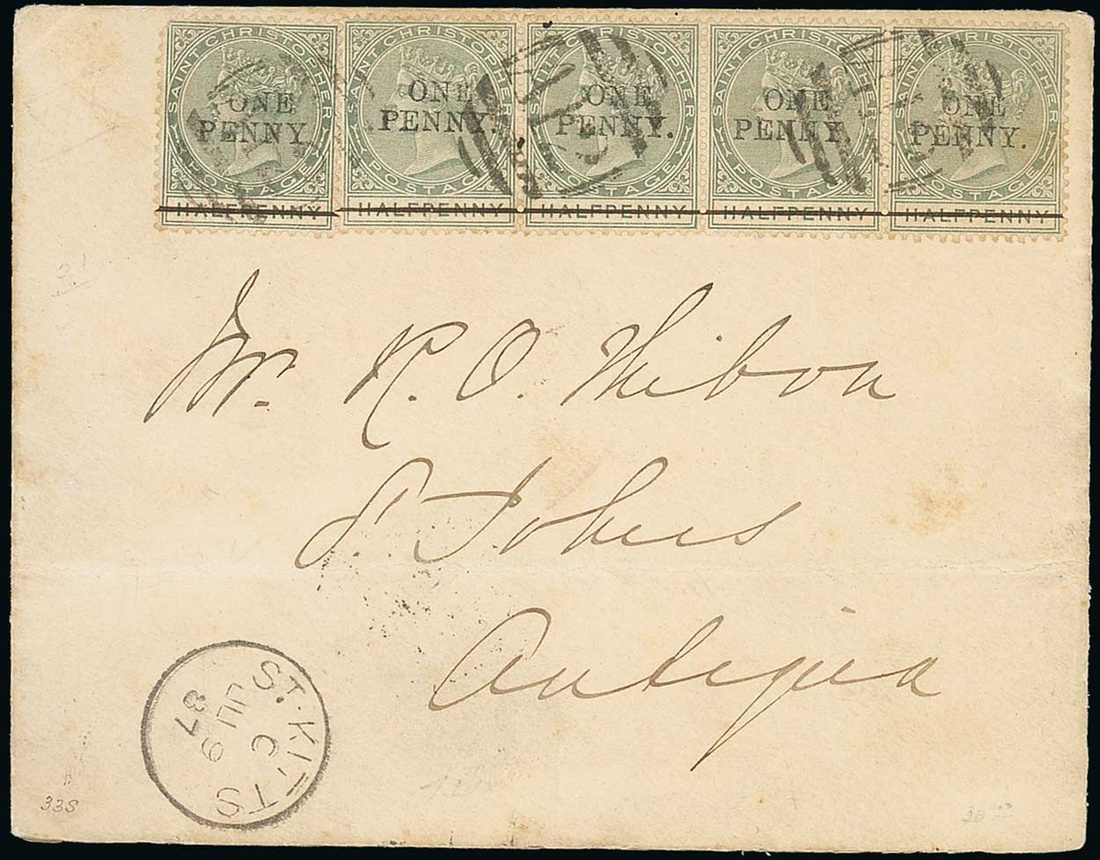 SAINT CHRISTOPHER SAINT CHRISTOPHER SAINT CHRISTOPHER SAINT CHRISTOPHER SAINT CHRISTOPHER
ONE ONE ONE ONE ONE
PENNY. PENNY. PENNY. PENNY PENNY.
POSTAGE POSTAGE POSTAGE POSTAGE POSTAGE
HALFPENNY HALFPENNY HALFPENNY HALFPENNY HALFPENNY
Mr. R. O. Thibou
St Johns
Antigua
ST. KITTS
C
JU 9
87
338